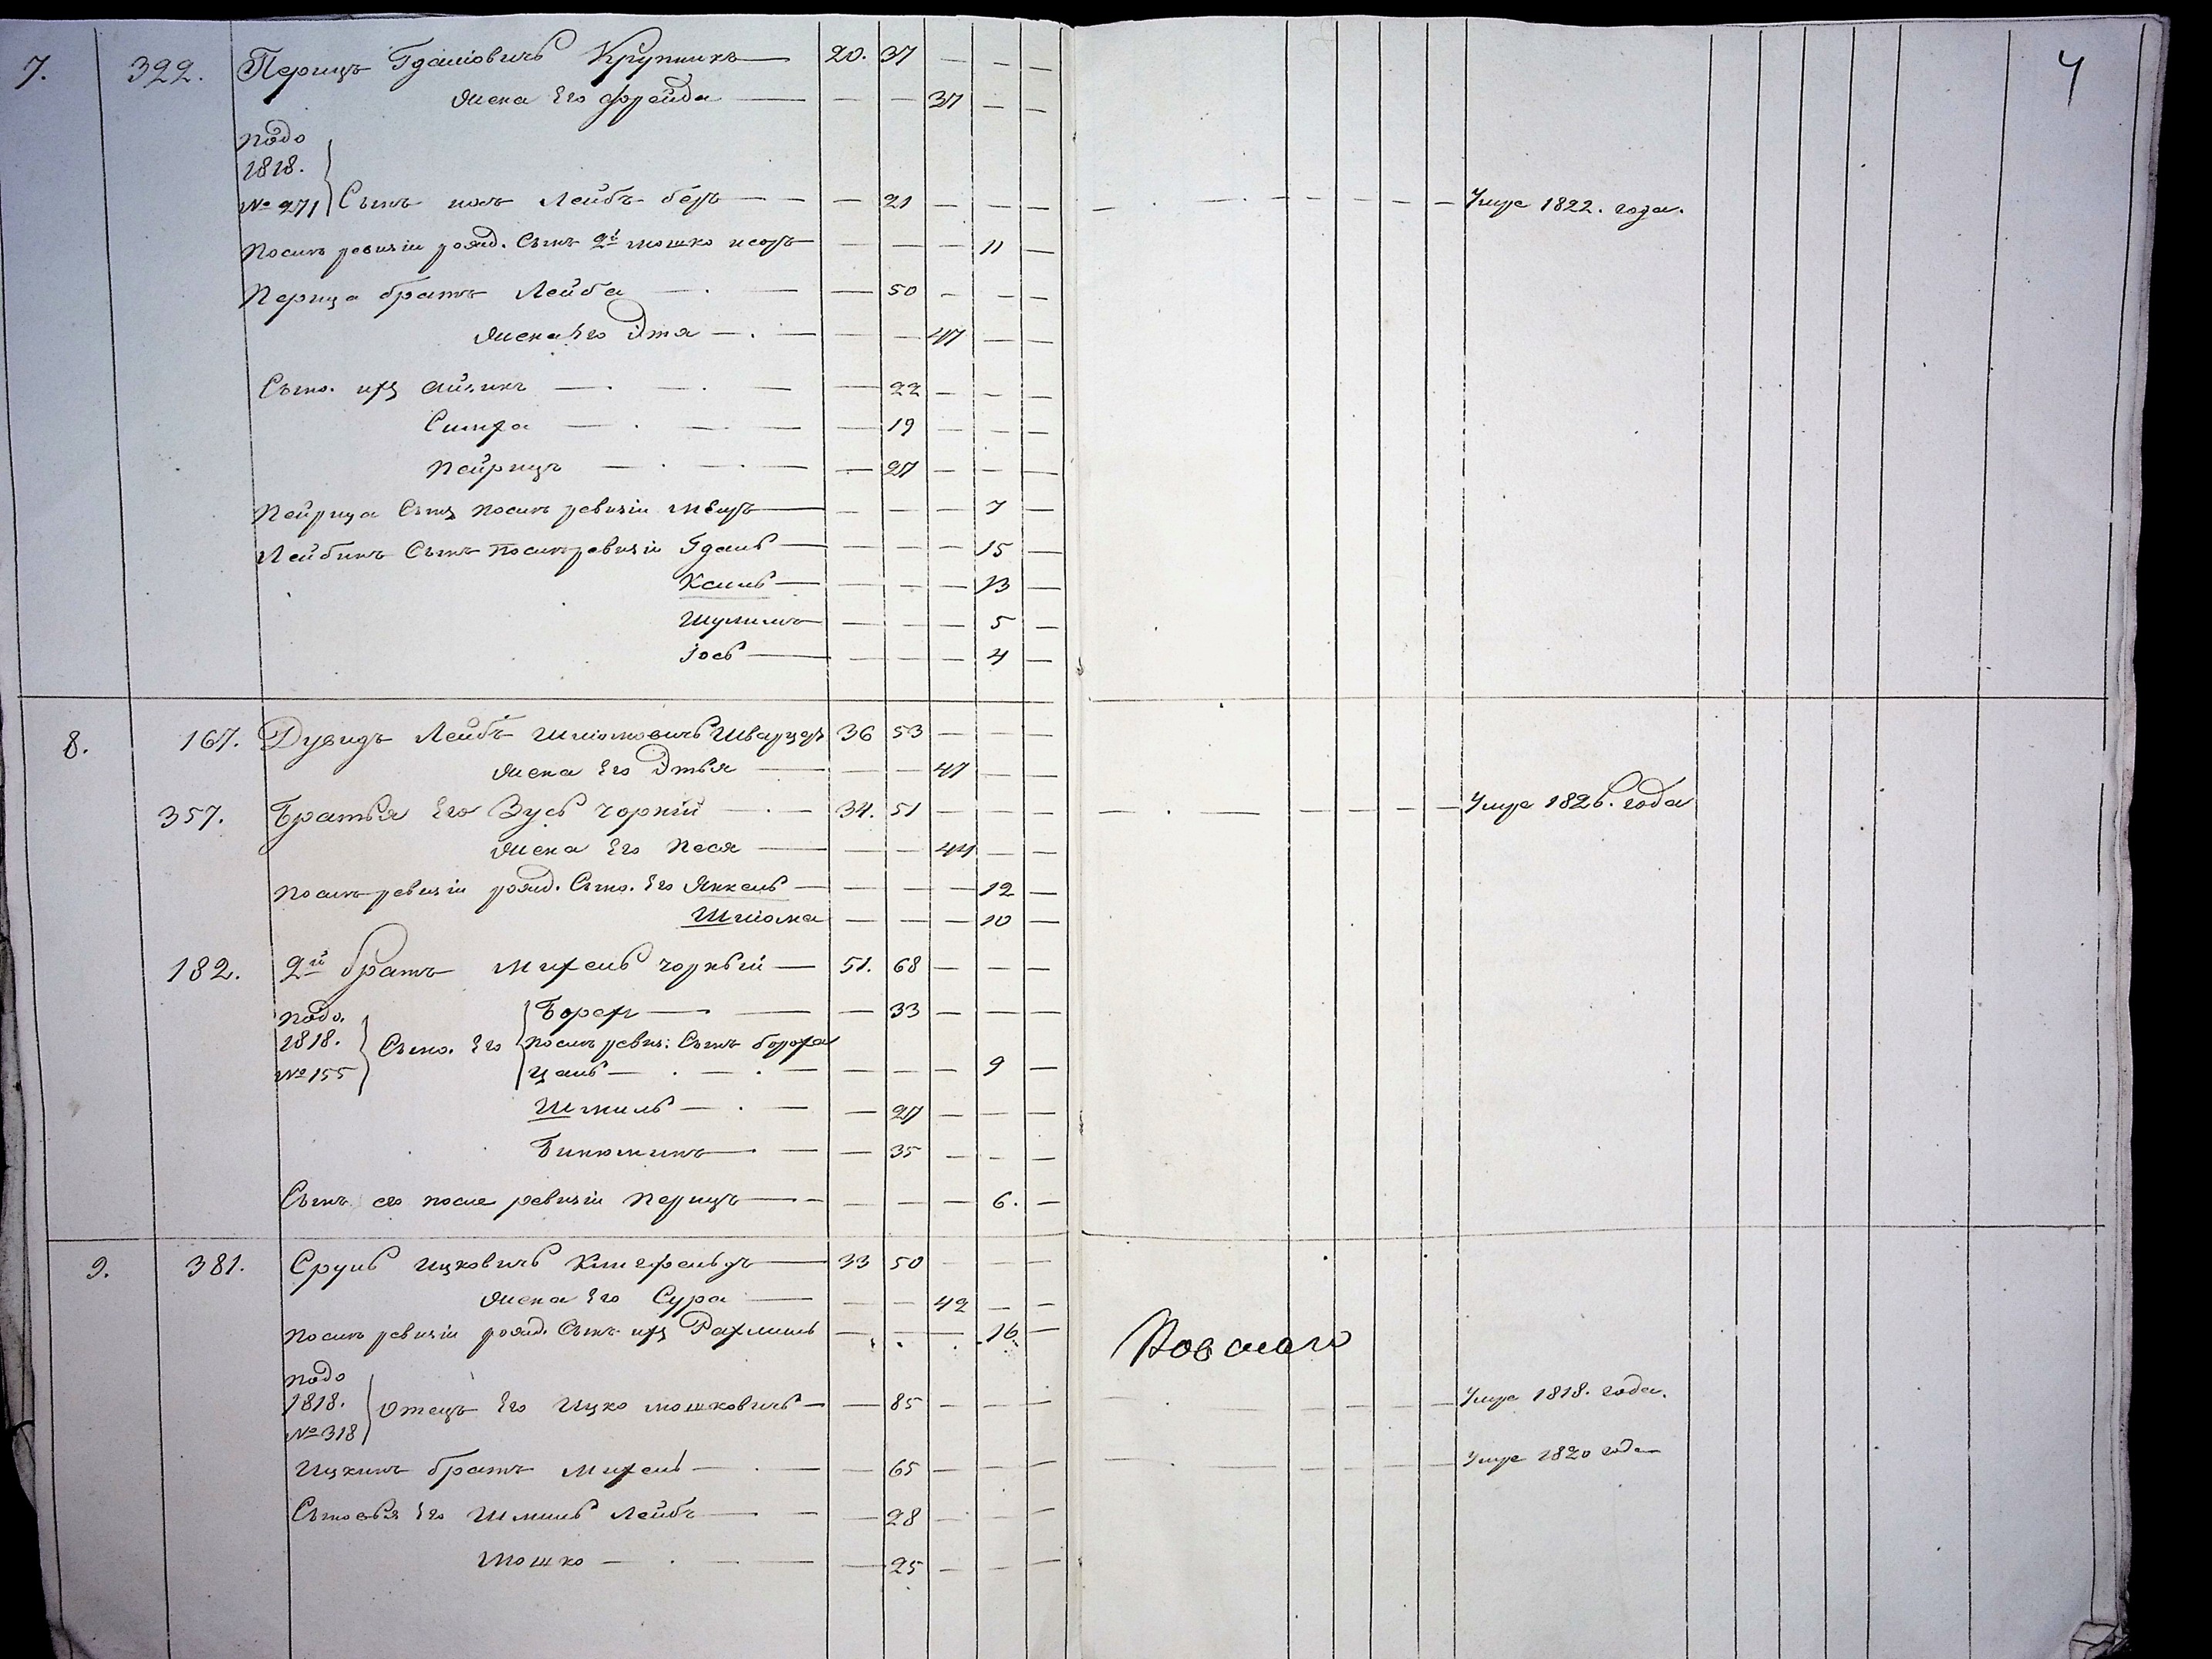 4
7. 322. Перицъ Гдаліовичъ Крупникъ 20. 37 — — —
жена Его Фрейда — — 37 — —
подо
1818.
№ 271 Сынъ Лейбъ беръ — 21 — — — Умре 1822. года.
после ревизіи рожд. Сынъ 2й мошко — — — 11 —
Перица братъ Лейба — 50 — — —
жена Его — — 47 — —
Сыно. ихъ — 22 — — —
Симха — 19 — — —
пейрицъ — 27 — — —
Пейрица Сынъ после ревизіи — — — 7 —
Лейбинъ Сынъ после ревизіи Гдаль — — — 15 —
— — — 13 —
Шулимъ — — — 5 —
Іось — — — 4 —
8. 167. Дувидъ Лейбъ Шліомовичъ Шварцеръ 36 53 — — —
жена Его — — 47 — —
357. Братья Его Зусь чорній 34. 51 — — — Умре 1826. года
жена Его Песя — — 44 — —
после ревизіи рожд. Сыно. Его Янкель — — — 12 —
Шліома — — — 10 —
182. 2й братъ михель чорный 51. 68 — — —
подо.
1818.
№ 155 Сыно. Его Борох — 33 — — —
после ревиз: Сынъ бороха
цаль — — — 9 —
Шмиль — 27 — — —
Биніоминъ — 35 — — —
Сынъ его после ревизіи перицъ — — — 6. —
9. 381. Сруль Ицковичъ 33 50 — — —
жена Его Сура — — 42 — —
после ревизіи рожд. Сынъ ихъ Рахмиль — — — 16 —
подо
1818.
№ 318 отецъ Его Ицко мошковичъ — 85 — — — Умре 1818. года.
Ицкинъ братъ михель — 65 — — — Умре 1820 года
Сыновья Его Шмиль Лейбъ — 28 — — —
мошко — 25 — — —